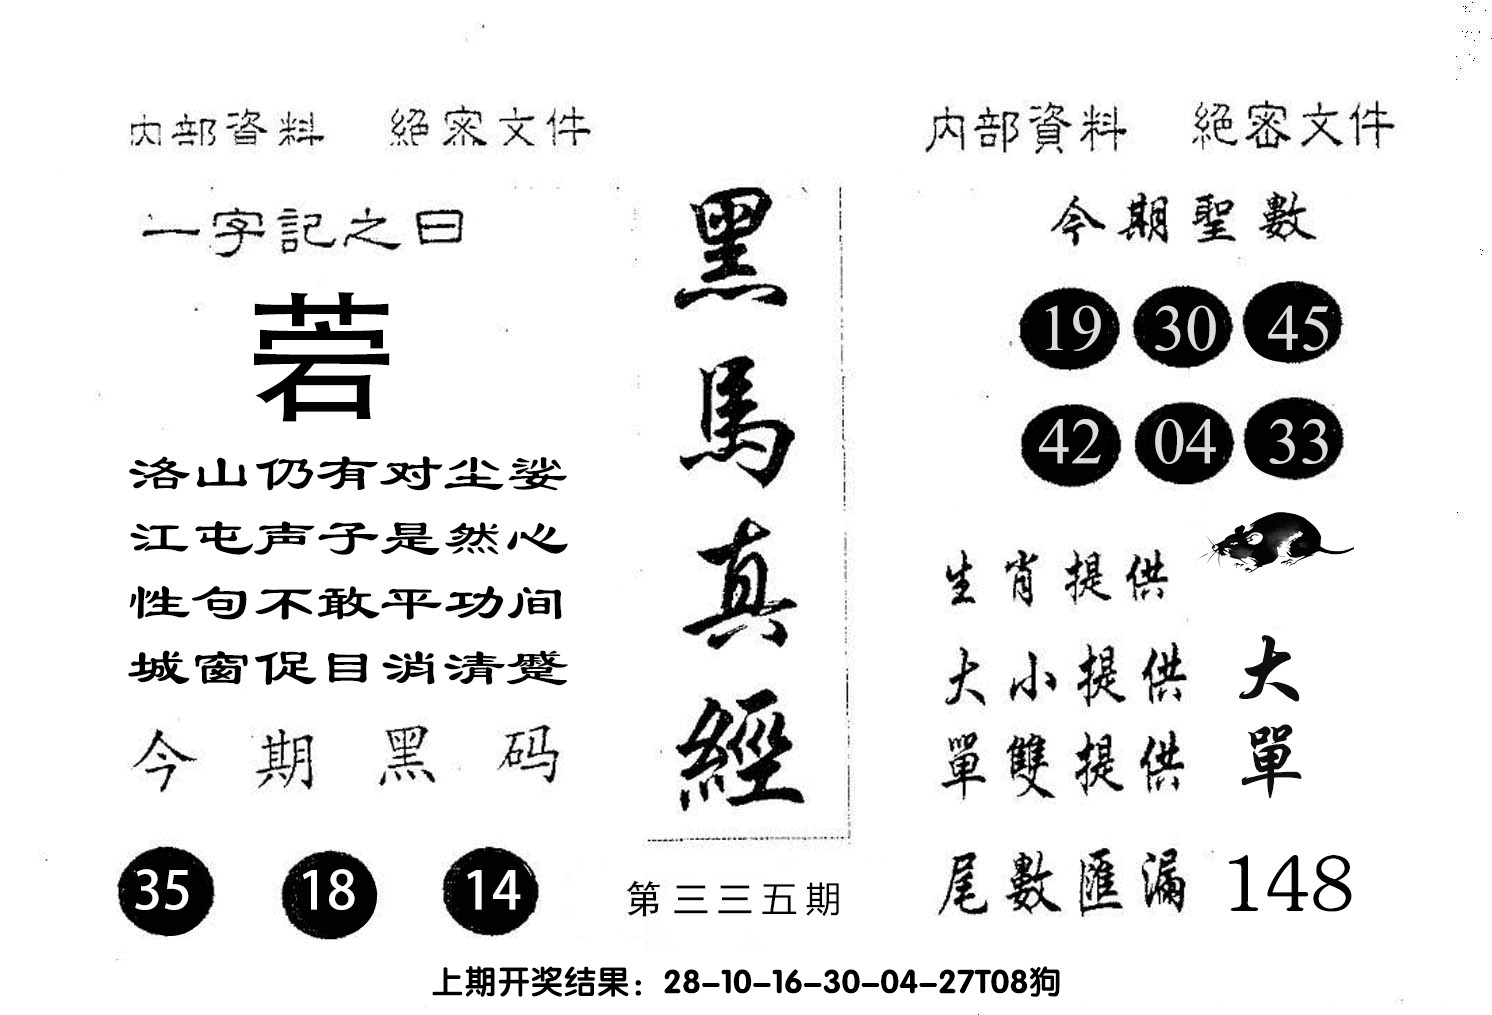 内部資料 絕密文件
一字記之曰
菪
洛山仍有对尘娑
江屯声子是然心
性句不敢平功间
城窗促目消清蹙
今期黑码
35 18 14
黑馬真經
第三三五期
内部資料 絕密文件
今期聖數
19 30 45
42 04 33
生肖提供
大小提供 大
單雙提供 單
尾數匯漏 148
上期开奖结果：28-10-16-30-04-27T08狗